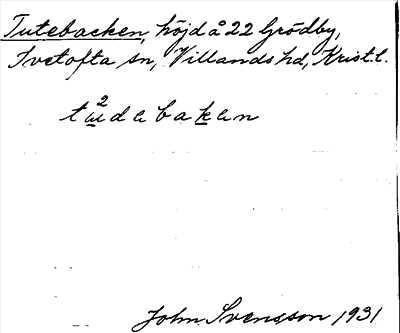 Tutebacken, höjd å 22 Grödby,
Ivetofta sn, Villands hd, Krist.l.
t²u̲debak̲en
John Svensson 1931